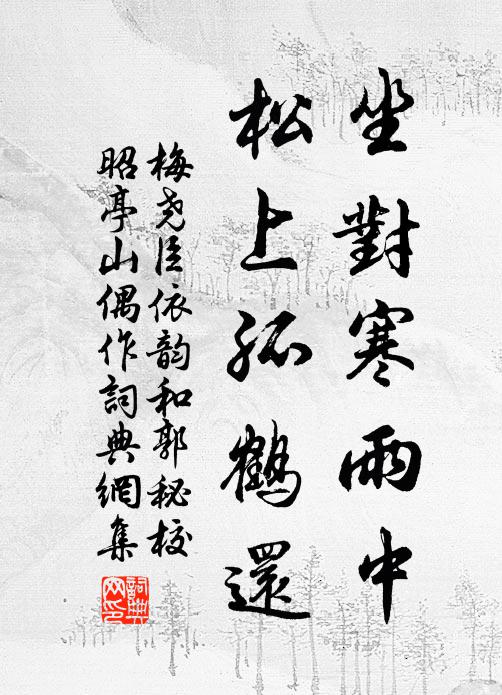 坐對寒雨中
松上孤鶴還
梅堯臣依韵和郭秘校
昭亭山偶作詞典網集
詞典
网